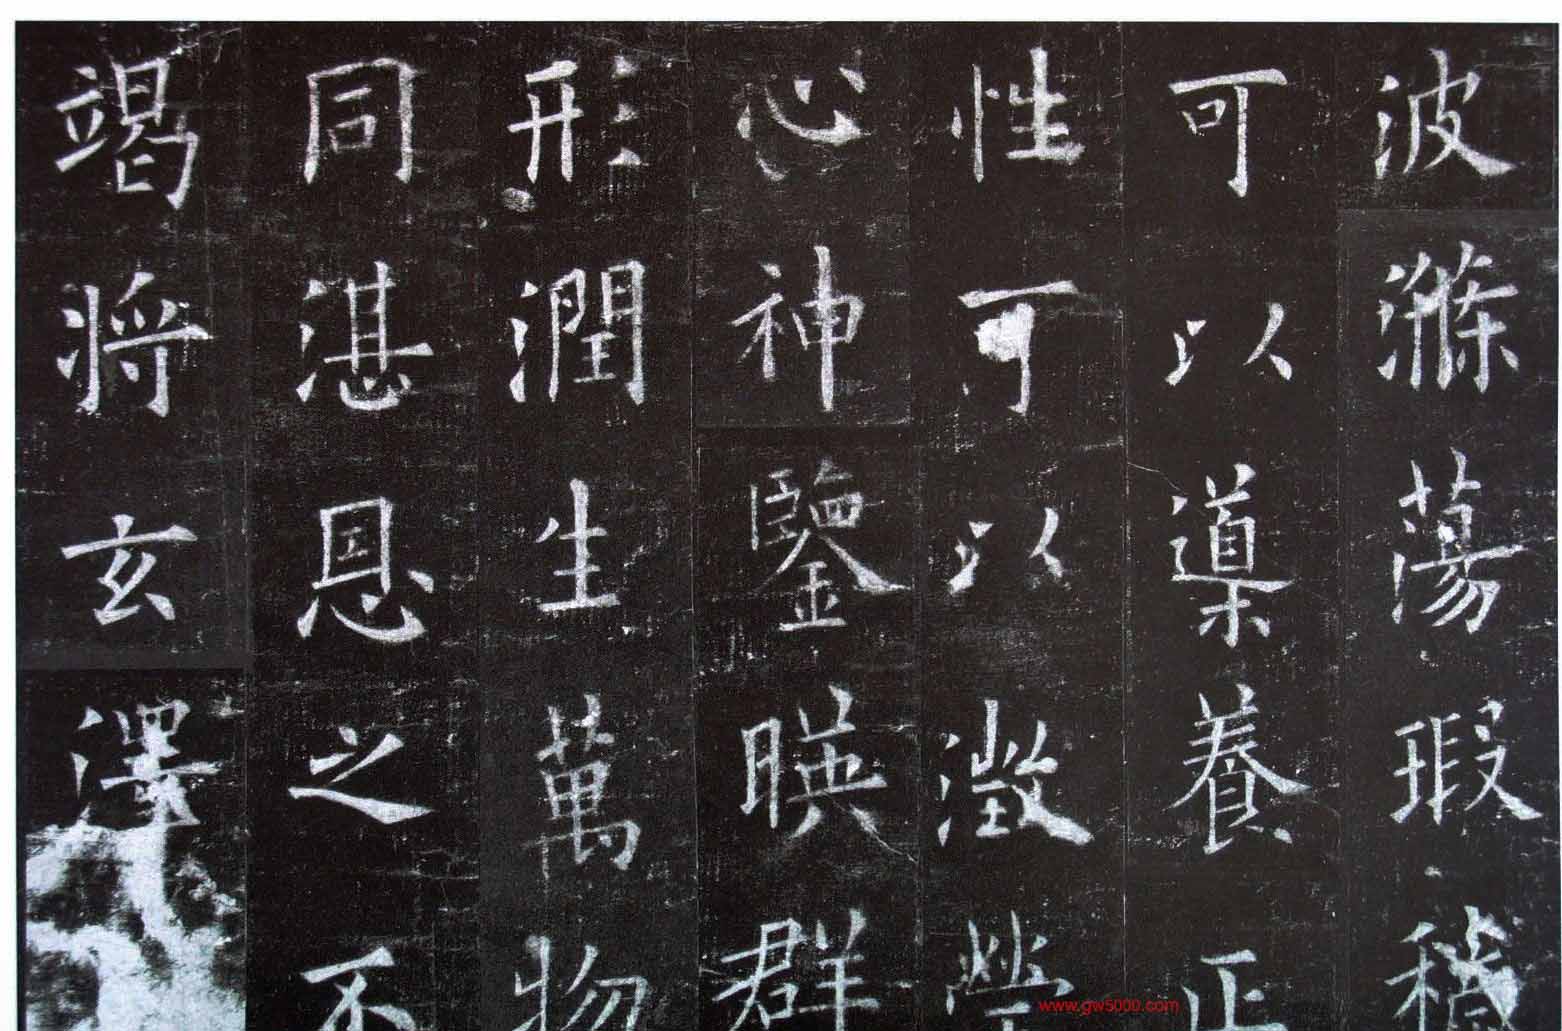 波滌蕩瑕穢
可以導養正
性可以澂瑩
心神鑒暎群
形潤生萬物
同湛恩之不
竭將玄澤
www.gw5000.com